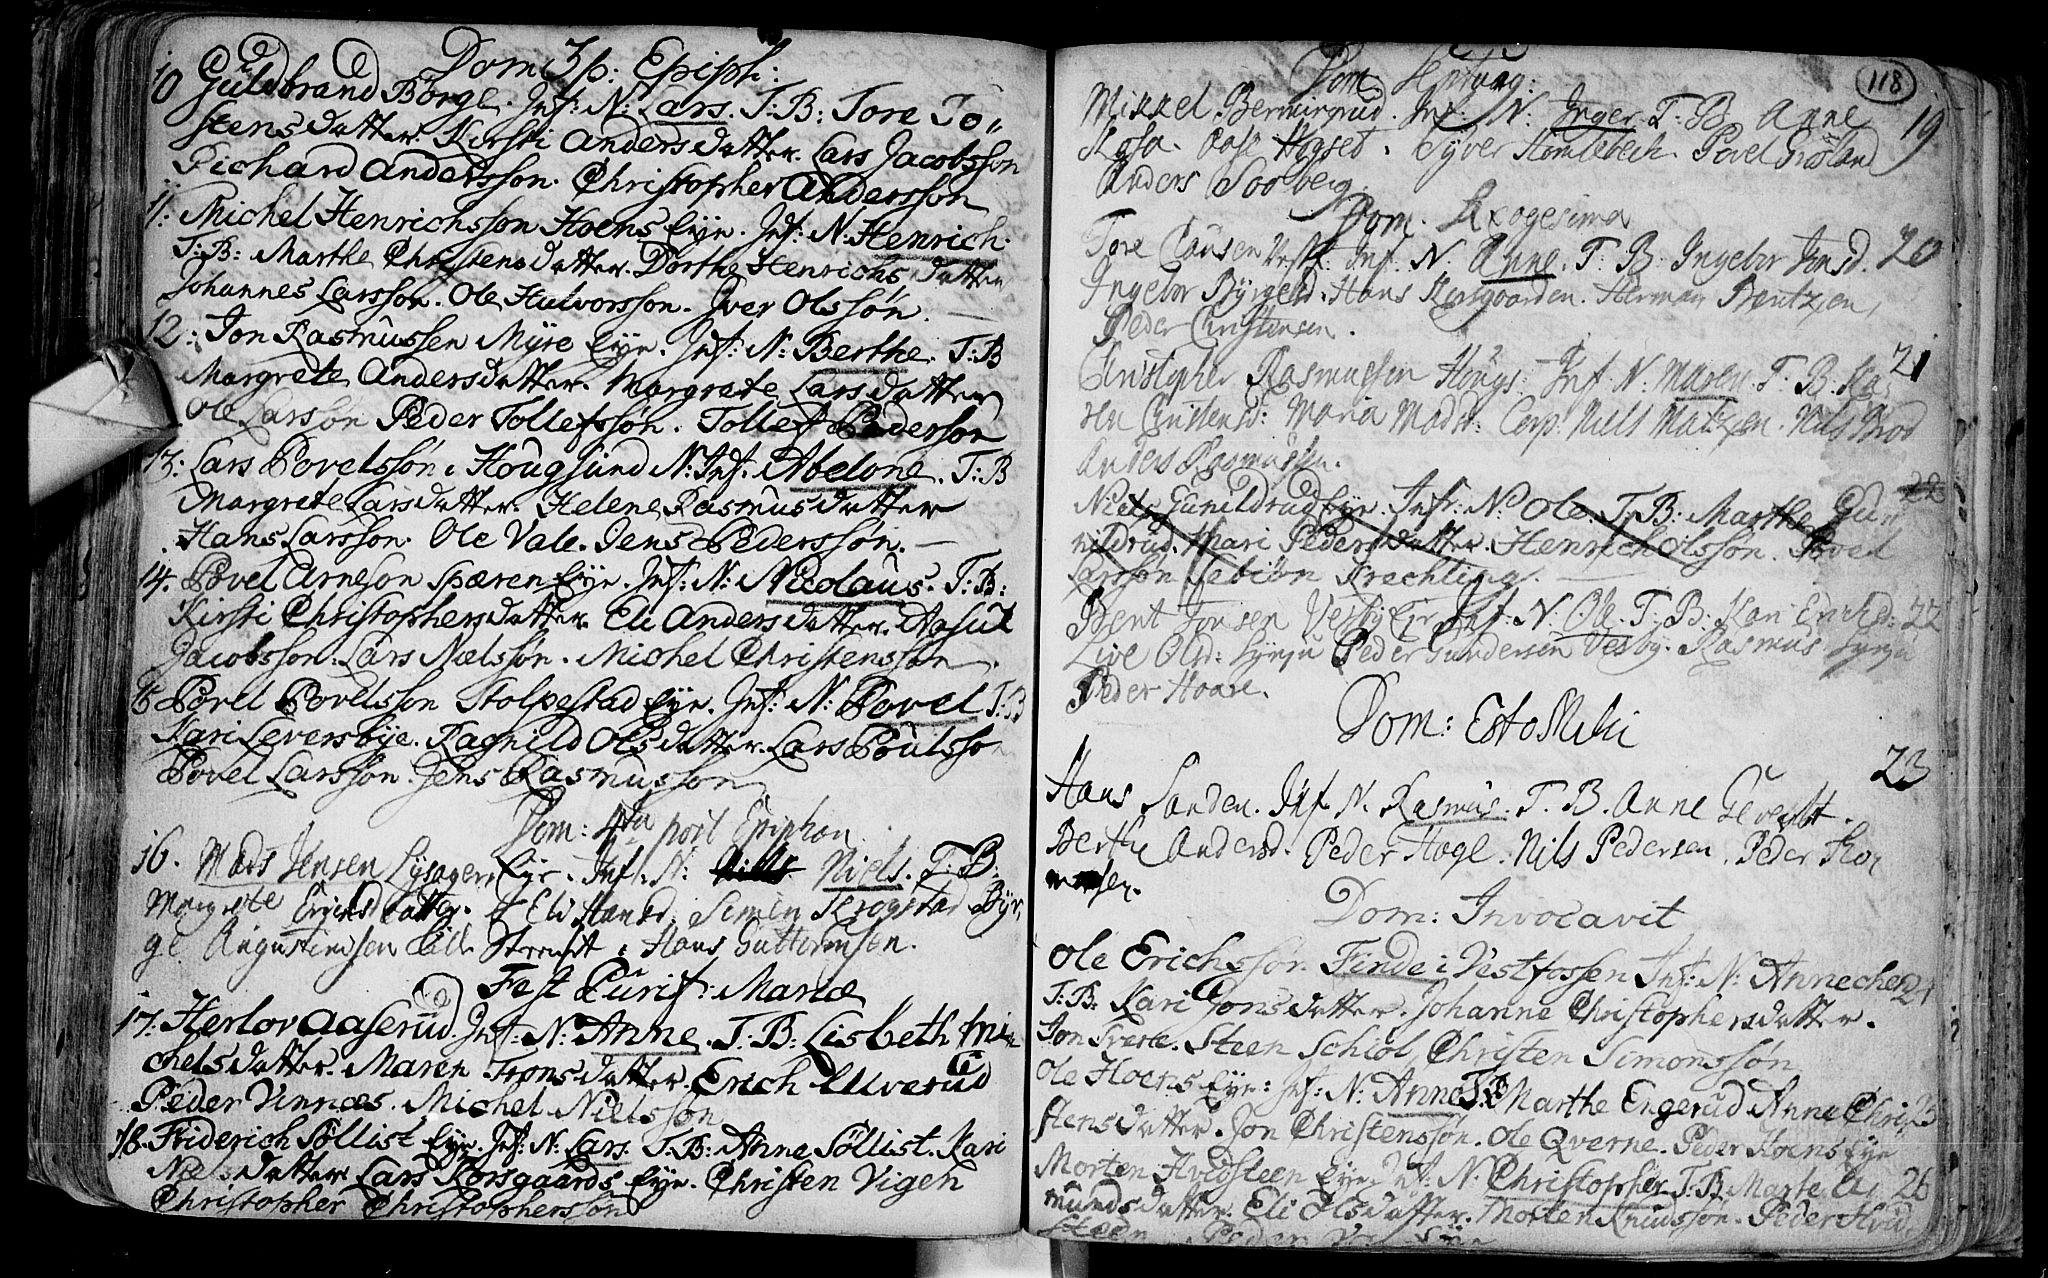 Dom 3 p: Epiph:
10 Guldbrand Börge. Inf: N: Lars. T: B: Tore To„
stensdatter. Kirsti Andersdatter. Lars Jacobsson
Richard Andersson. Christopher Andersson
11. Michel Henrichsson Hoens Eye. Inf: N: Henrich.
T: B: Marthe Christensdatter. Dorthe Henrichsdatter
Johannes Larsson. Ole Hulvorsson. Iver Olssøn.
12. Jon Rasmussen Myre Eye. Inf: N: Berthe. T: B
Margrete Andersdatter. Margrete Larsdatter
Ole Larsson Peder Tollefssøn. Tollef Pedersson
13: Lars Povelssøn i Hougsund N: Inf. Abelone. T: B
Margrete Larsdatter. Helene Rasmusdatter
Hans Larsson. Ole Vale. Jens Pederssøn.
14. Povel Arneson Spæren Eye. Inf: N: Nicolaus. T: B:
Kirsti Christophersdatter. Eli Andersdatter. Aasul
Jacobsson. Lars Nielssøn. Michel Christensson.
15 Povel Povelsson Stolpestad Eye. Inf: N: Povel T: B
Kari Leversbye. Ragnild Olsdatter. Lars Poulsson
Povel Larsson. Jens Rasmusson
Dom: 4ta post Epiphan
16. Mads Jensen Lysager Eye. Inf. N: Niels. T. B.
Margrete Erichsdatter. Eli Hansd. Simen Skrogstad Byr
ge Augustinsen. Hans Guttormsen.
Fest Purif: Mariæ
17. Herlov Aaserud. Inf: N: Anne. T: B: Lisbeth Mi
chelsdatter. Maren Tronsdatter. Erich Ulverud
Peder Vinnæs. Michel Nielsson
18. Friderich Söllist Eye. Inf: N: Lars. T: B: Anne Söllist. Kari
Nielsdatter Lars Korsgaards Eye. Christen Vigen
Christopher Christophersson
118
Dom. Septuag:
Mikkel Bermingrud. Inf. N: Inger T: B Anne 19
Aase Hogset. Syver Stomlebech. Povel
Anders Solberg.
Dom. Sexagesima
Tore Clausen Vestf. Inf. N. Anne. T. B. Ingebor Jonsd. 20
Ingebor Byrgesd. Hans Korsgaarden. Herman Bentzen,
Peder Christensen.
Christopher Rasmussen Hougs. Inf: N: Maren T. B: Ka 21
ren Christensd: Maria Madsd: Corp. Niels Matzen. Nils Brod
Anders Rasmussen.
Niels Gunildrud Eye. Inf: N: Ole. T: B: Marthe Gun 22
nildrud. Mari Pedersdatter. Henrich Olssøn. Povel
Larssøn Sebiøn Krechling.
Bent Jonsen Vesby Eje Inf: N: Ole. T: B: Kari Erichsd: 22
Live Olsd: Peder Gundersen Vesby. Rasmus
Peder Hoare.
Dom: Esto Mihi
Hans Sanden. Inf. N. Rasmus. T. B. Anne Gevelt. 23
Berthe Andersd. Peder Hogl. Nils Pedersen. Peder Tho
Dom: Invocavit
Ole Erichssøn Finde i Vestfossen Inf: N: Annechen 24
T: B: Kari Jonsdatter. Johanne Christophersdatter.
Jon Steen Schiøl, Christen Simonssøn
Ole Hoens Eye: Inf: N: Anne T. B Marthe Engerud Anne Chri
stensdatter. Jon Christenssøn. Ole Qverne. Peder Hoens Eye
Morten Hvidsteen Eye. Inf. N: Christopher T: B: Marte A 26
mundsdatter. Eli Olsdatter. Morten Knudsson. Peder Hvid
steen. Peder